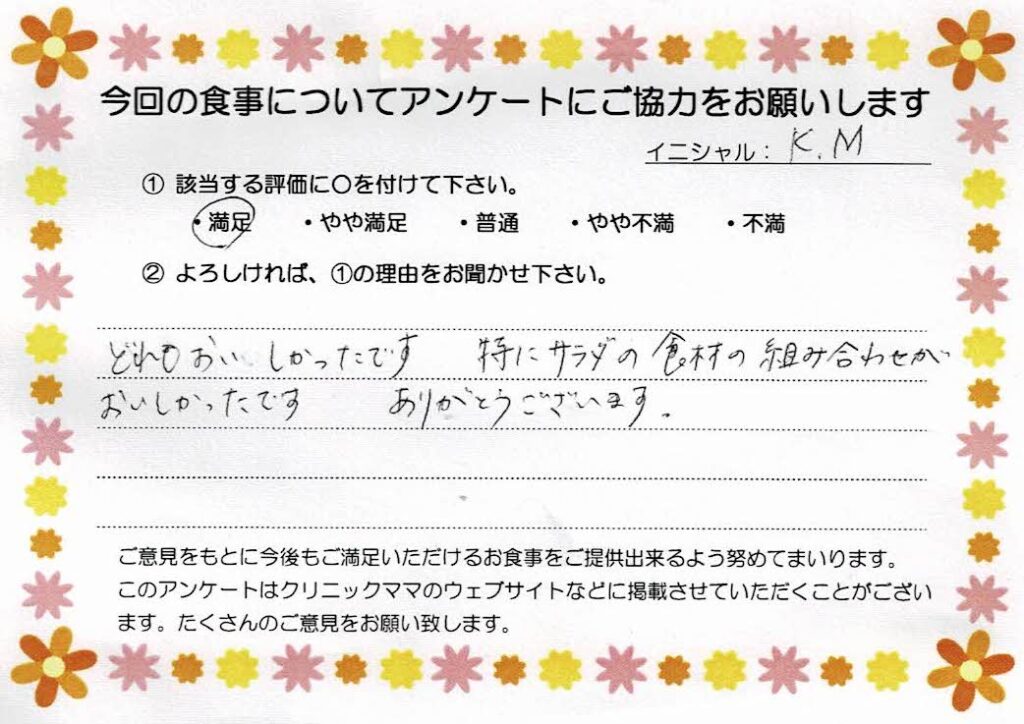 今回の食事についてアンケートにご協力をお願いします
イニシャル： K.M
① 該当する評価に〇を付けて下さい。
・満足 ・やや満足 ・普通 ・やや不満 ・不満
② よろしければ、①の理由をお聞かせ下さい。
どれもおいしかったです 特にサラダの食材の組み合わせが
おいしかったです ありがとうございます。
ご意見をもとに今後もご満足いただけるお食事をご提供出来るよう努めてまいります。
このアンケートはクリニックママのウェブサイトなどに掲載させていただくことがござい
ます。たくさんのご意見をお願い致します。